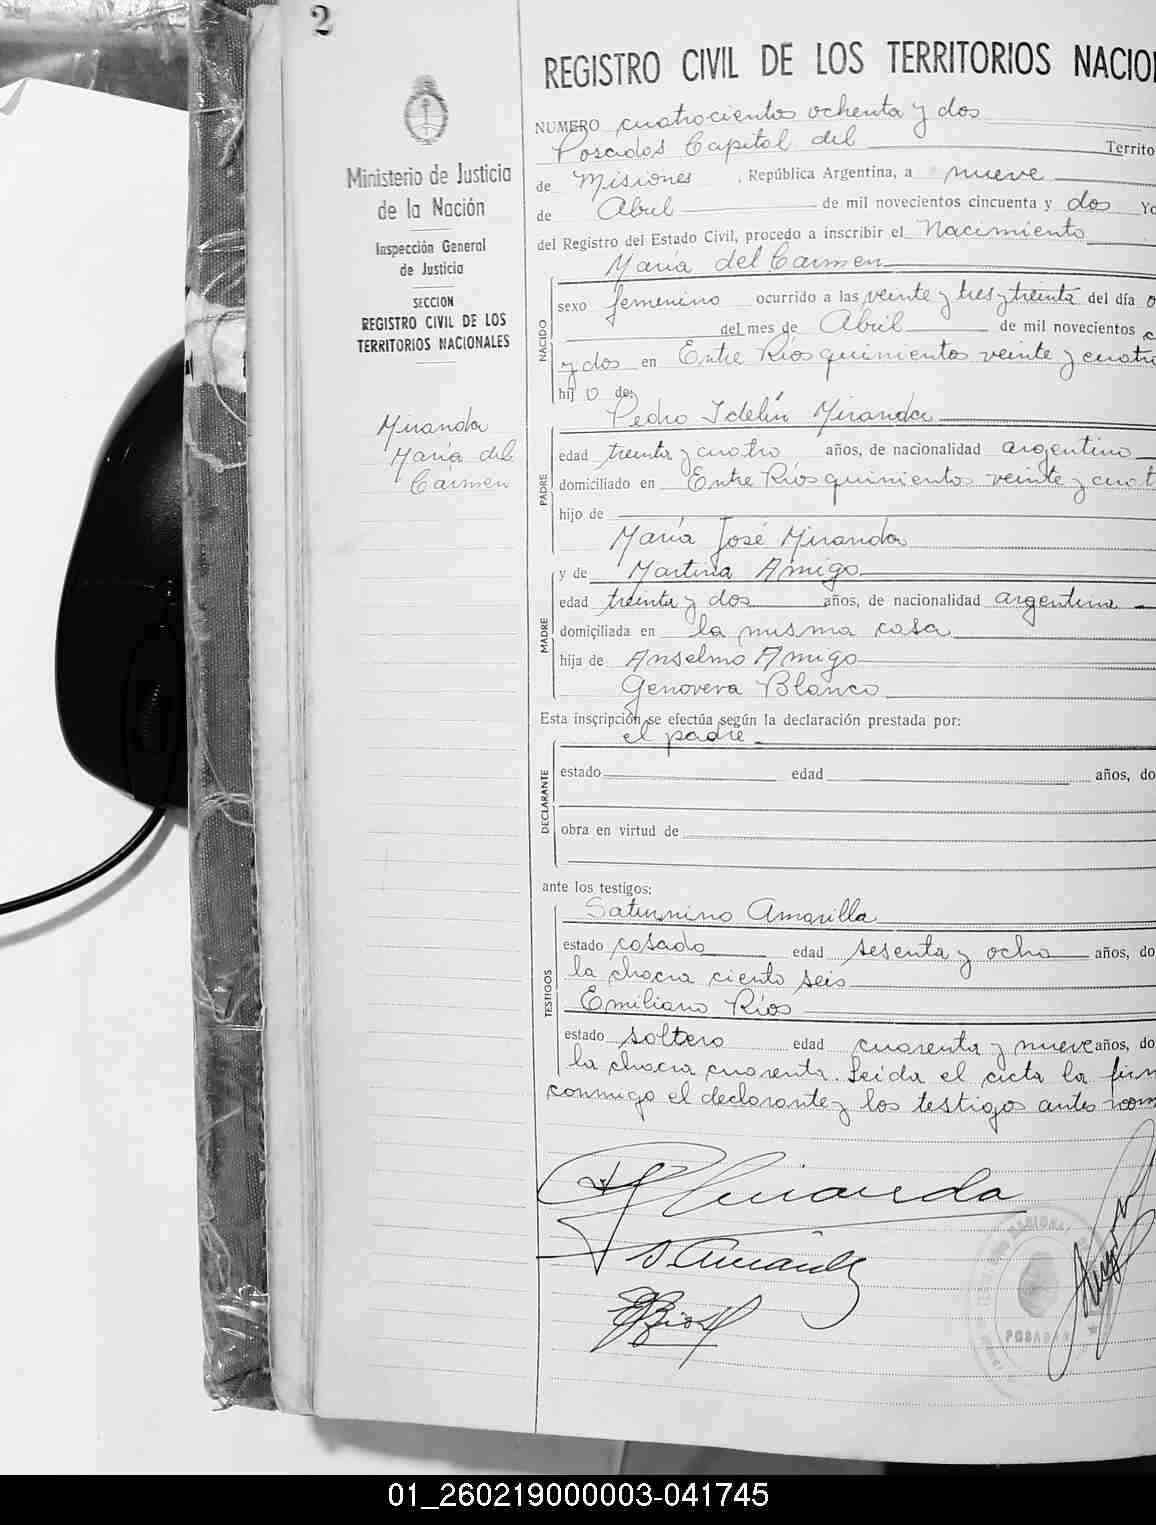 2
Ministerio de Justicia
de la Nación
Inspección General
de Justicia
SECCION
REGISTRO CIVIL DE LOS
TERRITORIOS NACIONALES
Miranda
María del
Carmen
REGISTRO CIVIL DE LOS TERRITORIOS NACIO
NUMERO cuatrocientos ochenta y dos
Posadas Capital del Territo
de Misiones , República Argentina, a nueve
de Abril de mil novecientos cincuenta y dos Yo
del Registro del Estado Civil, procedo a inscribir el Nacimiento
María del Carmen
NACIDO
sexo femenino ocurrido a las veinte y tres y treinta del día o
del mes de Abril de mil novecientos c
y dos en Entre Ríos quinientos veinte y cuatro
hij o de:
Pedro Idelín Miranda
PADRE
edad treinta y cuatro años, de nacionalidad argentino
domiciliado en Entre Ríos quinientos veinte y cuat
hijo de
María José Miranda
y de Martina Amigo
MADRE
edad treinta y dos años, de nacionalidad argentina
domiciliada en la misma casa
hija de Anselmo Amigo
Genoveva Blanco
Esta inscripción se efectúa según la declaración prestada por:
el padre
DECLARANTE
estado edad años, do
obra en virtud de
ante los testigos:
Saturnino Amarilla
TESTIGOS
estado casado edad sesenta y ocho años, do
la chacra ciento seis
Emiliano Ríos
estado soltero edad cuarenta y nueve años, do
la chacra cuarenta. Leida el acta la firm
conmigo el declarante y los testigos antes nom
Miranda
POSADAS
01_260219000003-041745